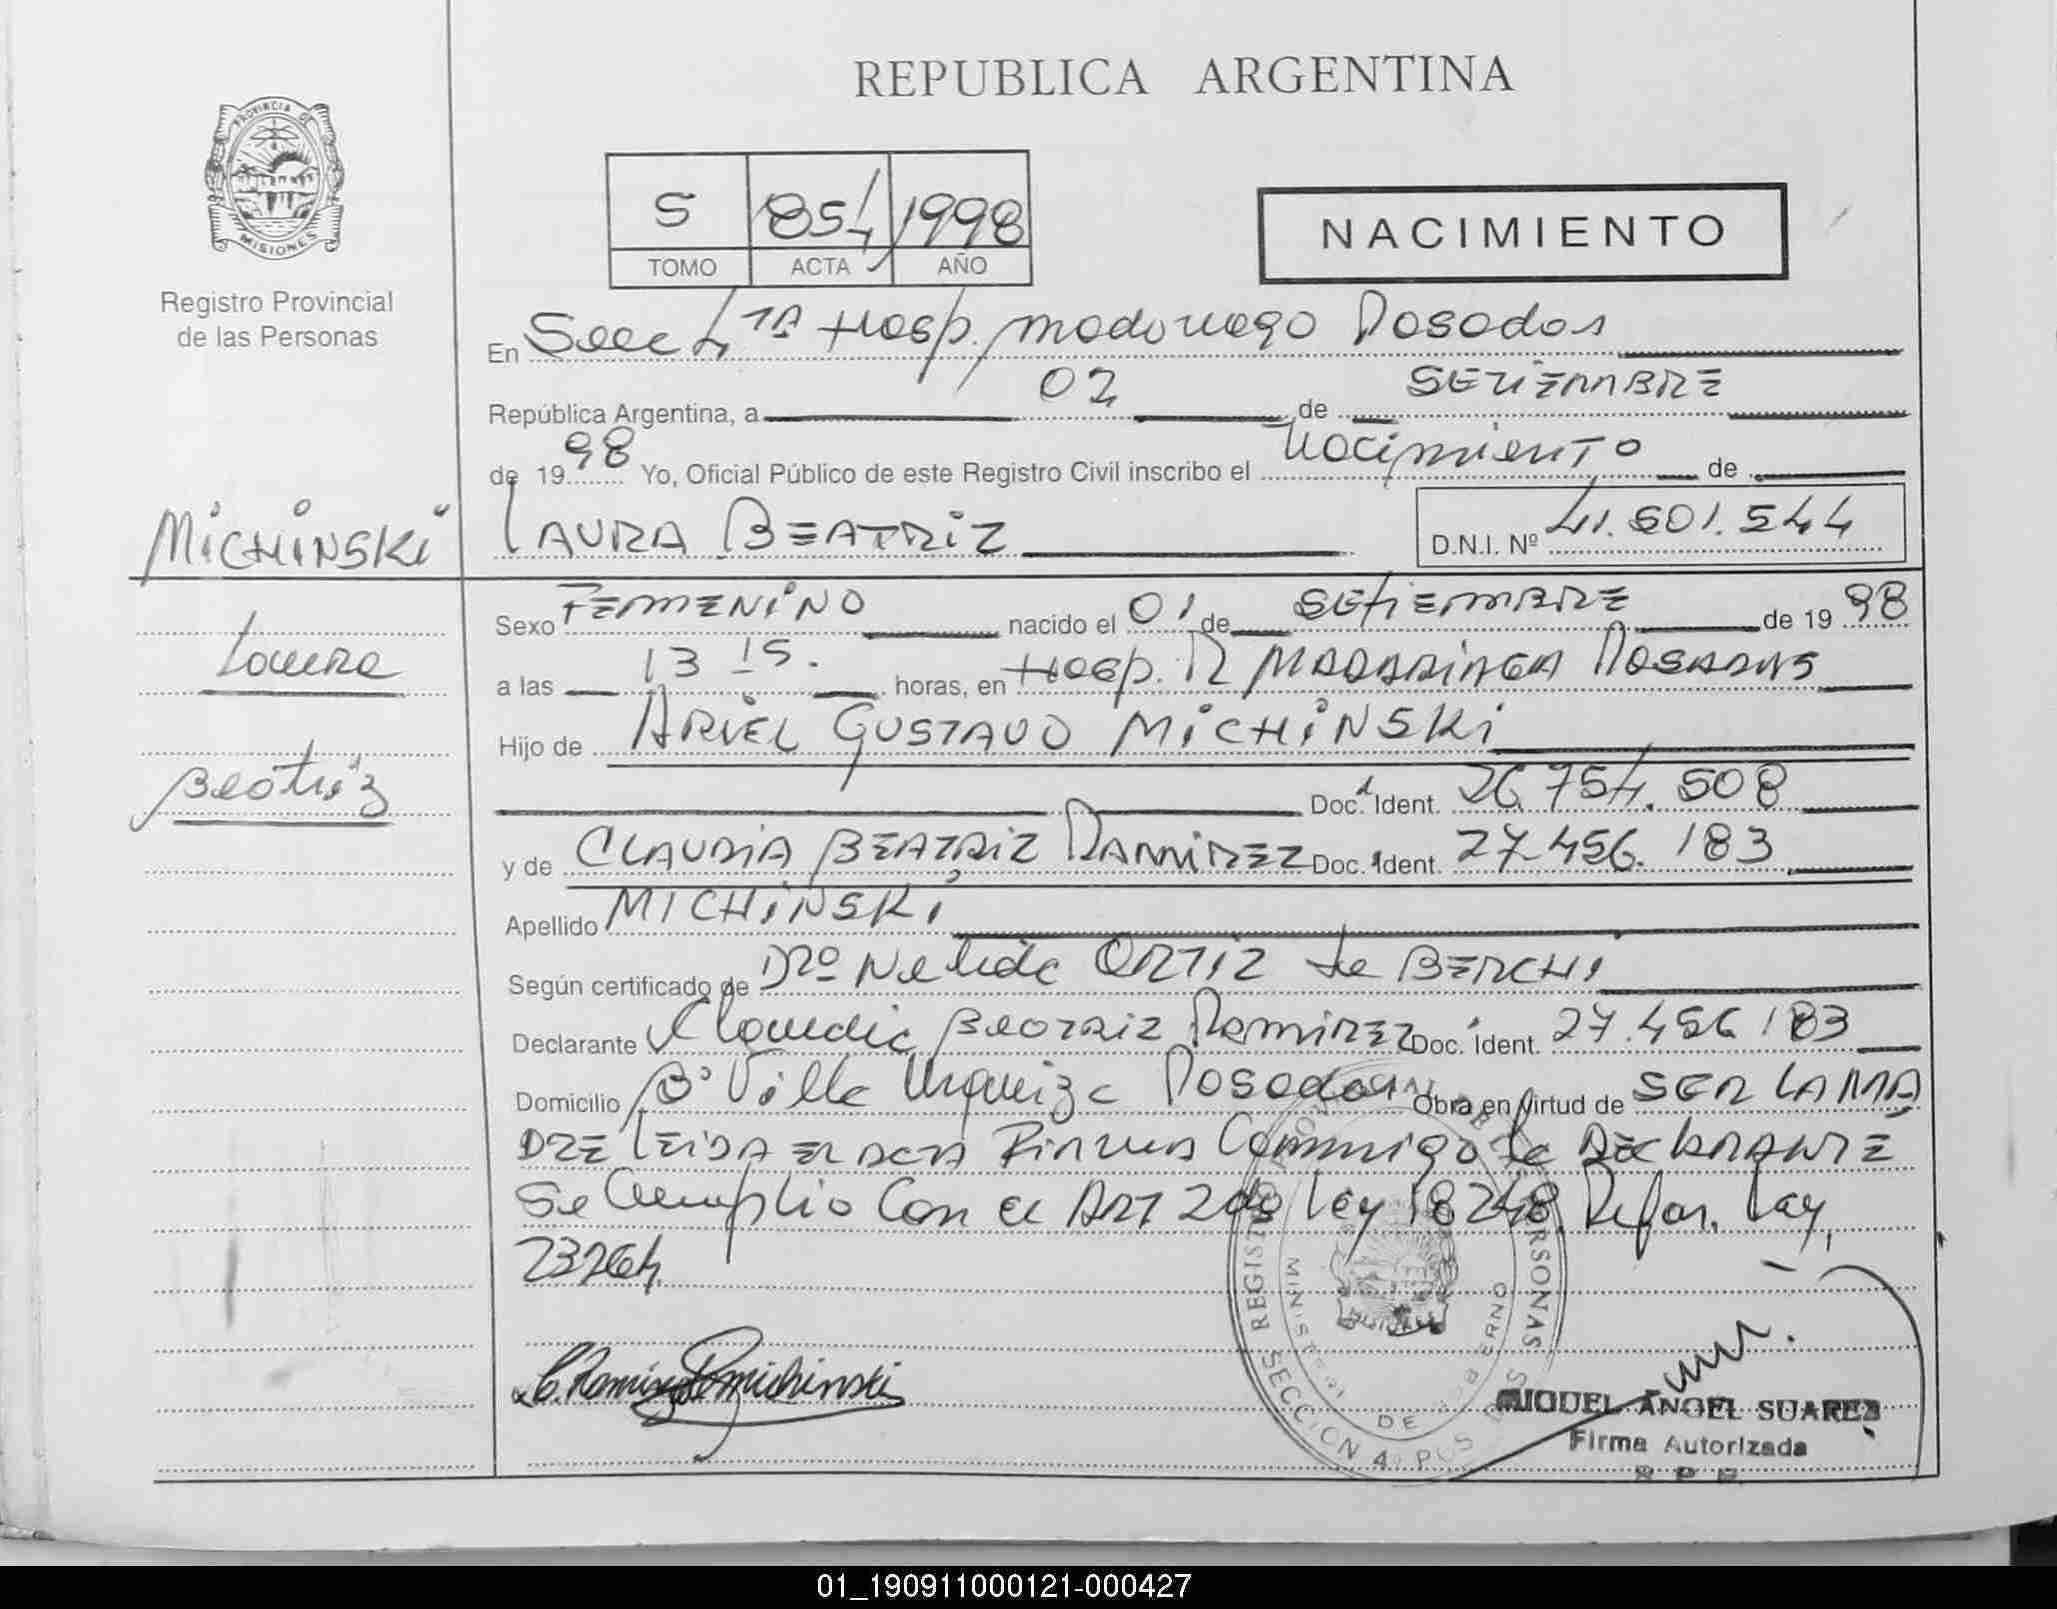 REPUBLICA ARGENTINA
PROVINCIA DE
MISIONES
Registro Provincial
de las Personas
5 854 1998
TOMO ACTA AÑO
NACIMIENTO
En Secc 4 1ª Hosp. Madariaga Posadas
República Argentina, a 02 de SETIEMBRE
de 1998 Yo, Oficial Público de este Registro Civil inscribo el nacimiento de
MICHINSKI LAURA BEATRIZ D.N.I. Nº 41.501.544
Laura
Beatriz
Sexo FEMENINO nacido el 01 de SETIEMBRE de 1998
a las 13 15. horas, en Hosp. R MADARIAGA POSADAS
Hijo de ARIEL GUSTAVO MICHINSKI
Doc. Ident. 26.754.508
y de CLAUDIA BEATRIZ RAMIREZ Doc. Ident. 27.456.183
Apellido MICHINSKI
Según certificado de Dra Nelida ORTIZ de BERCHI
Declarante Claudia Beatriz Ramirez Doc. Ident. 27.456 183
Domicilio Bº Villa Urquiza Posadas Obra en virtud de SER LA MA
DRE LEIDA EL ACTA FIRMA Conmigo la DECLARANTE
Se Cumplio Con el ART 2do Ley 18248. Refor. Ley
23264.
C. Ramirez Michinski
REGISTRO PERSONAS
SECCION 4 POSADAS
MINISTERIO DE GOBIERNO
MIGUEL ANGEL SUAREZ
Firma Autorizada
R P P
01_190911000121-000427